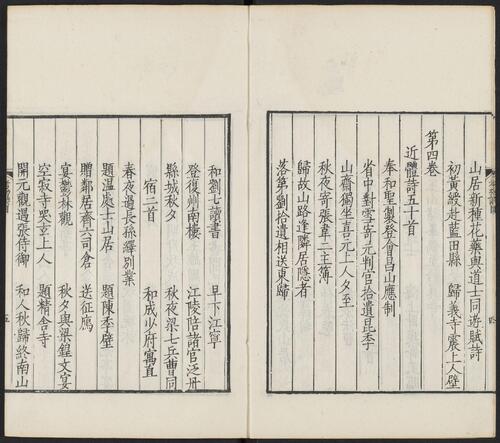 山居新種花藥與道士同遊賦詩
初黃綬赴藍田縣 歸義寺震上人壁
第四卷
近體詩五十首
奉和聖製登會昌山應制
省中對雪寄元判官拾遺昆季
山齋獨坐喜元上人夕至
秋夜寄張韋二主簿
歸故山路逢隣居隱者
落第劉拾遺相送東歸
和劉七讀書 早下江寧
登復州南樓 江陵陪諸官泛舟
縣城秋夕 秋夜梁七兵曹同
宿二首 和成少府寓直
春夜過長孫繹別業
題温處士山居 題陳季壁
贈鄰居齊六司倉 送征鴈
宴鬱林觀 秋夕與梁鍠文宴
空寂寺哭玄上人 題精舍寺
開元觀遇張侍御 和人秋歸終南山
五